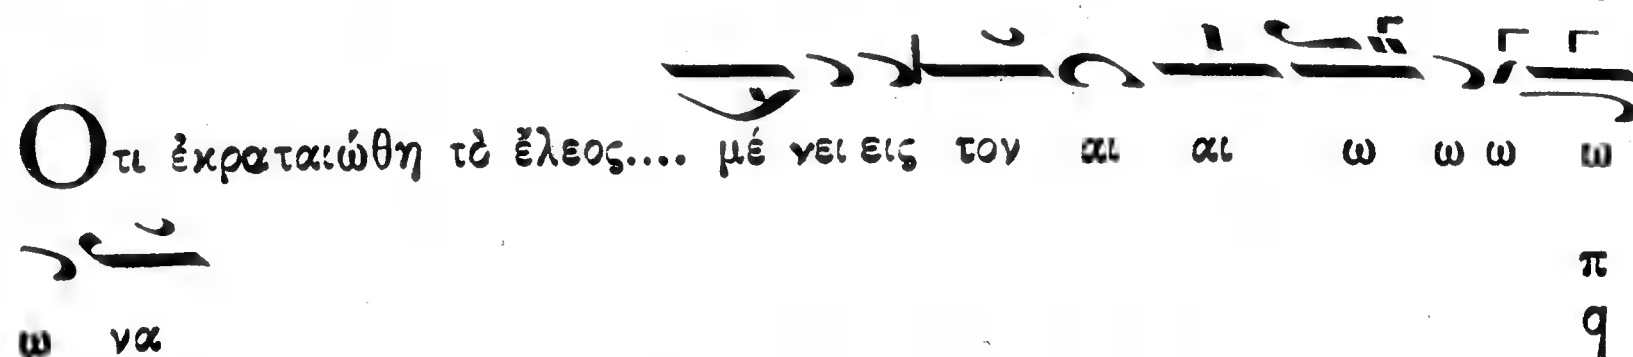 Οτι ἐκραταιώθη τὸ ἔλεος.... μέ νει εις τον αι αι ω ω ω ω
π
ω να q